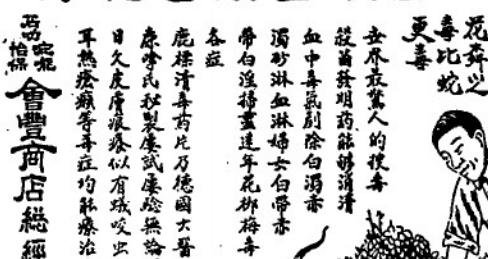 花卉之
毒比蛇
更毒
世界最驚人的搜毒
殺菌發明药能够消清
血中毒氣剔除白濁赤
濁砂淋血淋婦女白帶赤
帶白淫掃盡遠年花柳梅毒
各症
鹿標清毒药片乃德國大醫
康嘜氏秘製屢試屢驗無論
日久皮膚痕癢似有蟻咬虫
耳熱瘡癩等毒症均能療治
石叻 吡叻
怡保
會豐商店総經